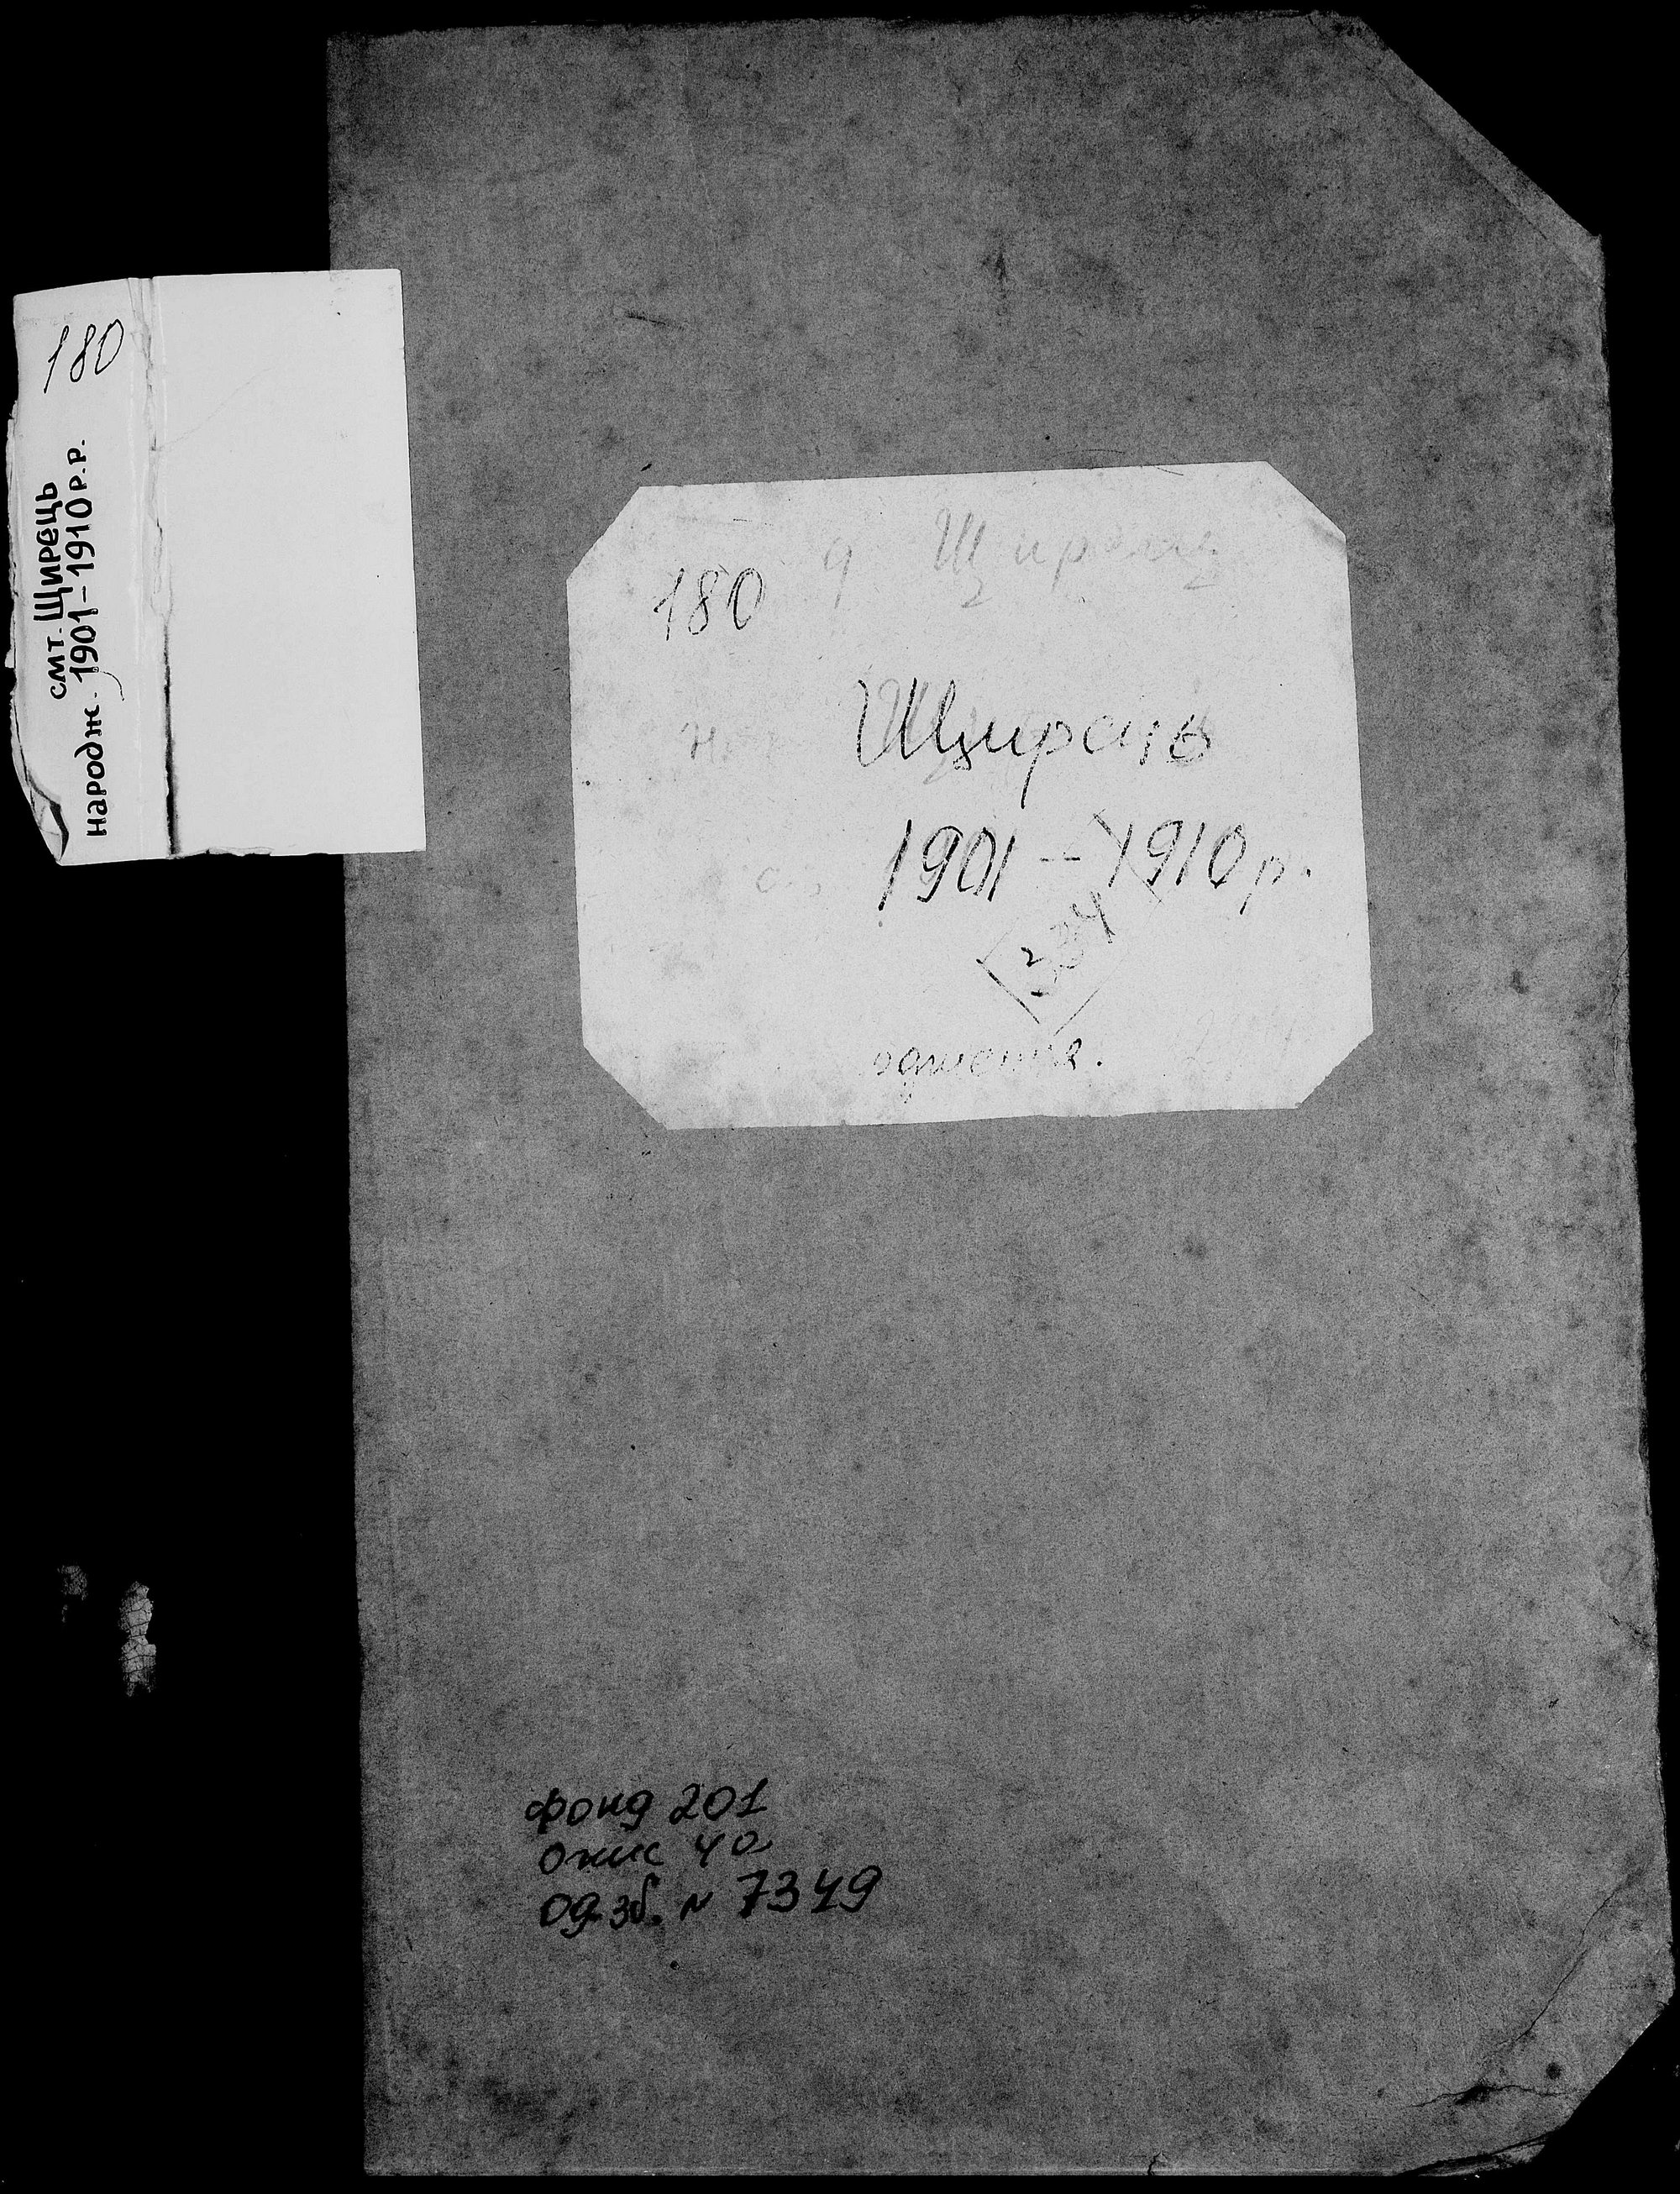 180
смт. Щирець
народж. 1901-1910 р.р.
180
Щирець
1901 - 1910 р.
фонд 201
опис 4а
од.зб. N 7349